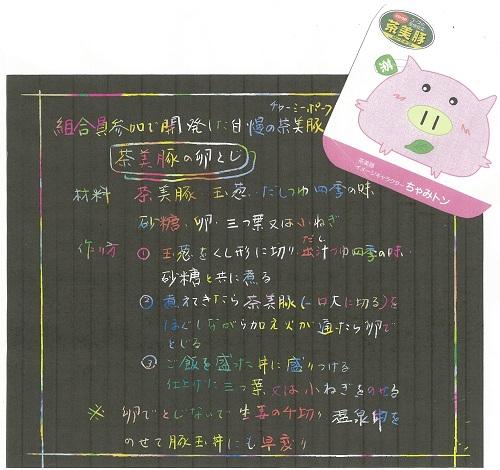 コープ
茶美豚
茶
茶美豚
イメージキャラクター ちゃみトン
チャーミーポーク
組合員参加で開発した自慢の茶美豚
茶美豚の卵とじ
材料 茶美豚、玉葱、だしつゆ四季の味
砂糖、卵、三つ葉又は小ねぎ
作り方 ① 玉葱をくし形に切り、出汁つゆ四季の味、
だし
砂糖と共に煮る
② 煮えてきたら茶美豚(一口大に切る)を
ほぐしながら加え火が通たら卵で
とじる
③ ご飯を盛った丼に盛りつける
仕上げに三つ葉又は小ねぎをのせる
※ 卵でとじないで生姜の千切り 温泉卵を
のせて豚玉丼にも早変り